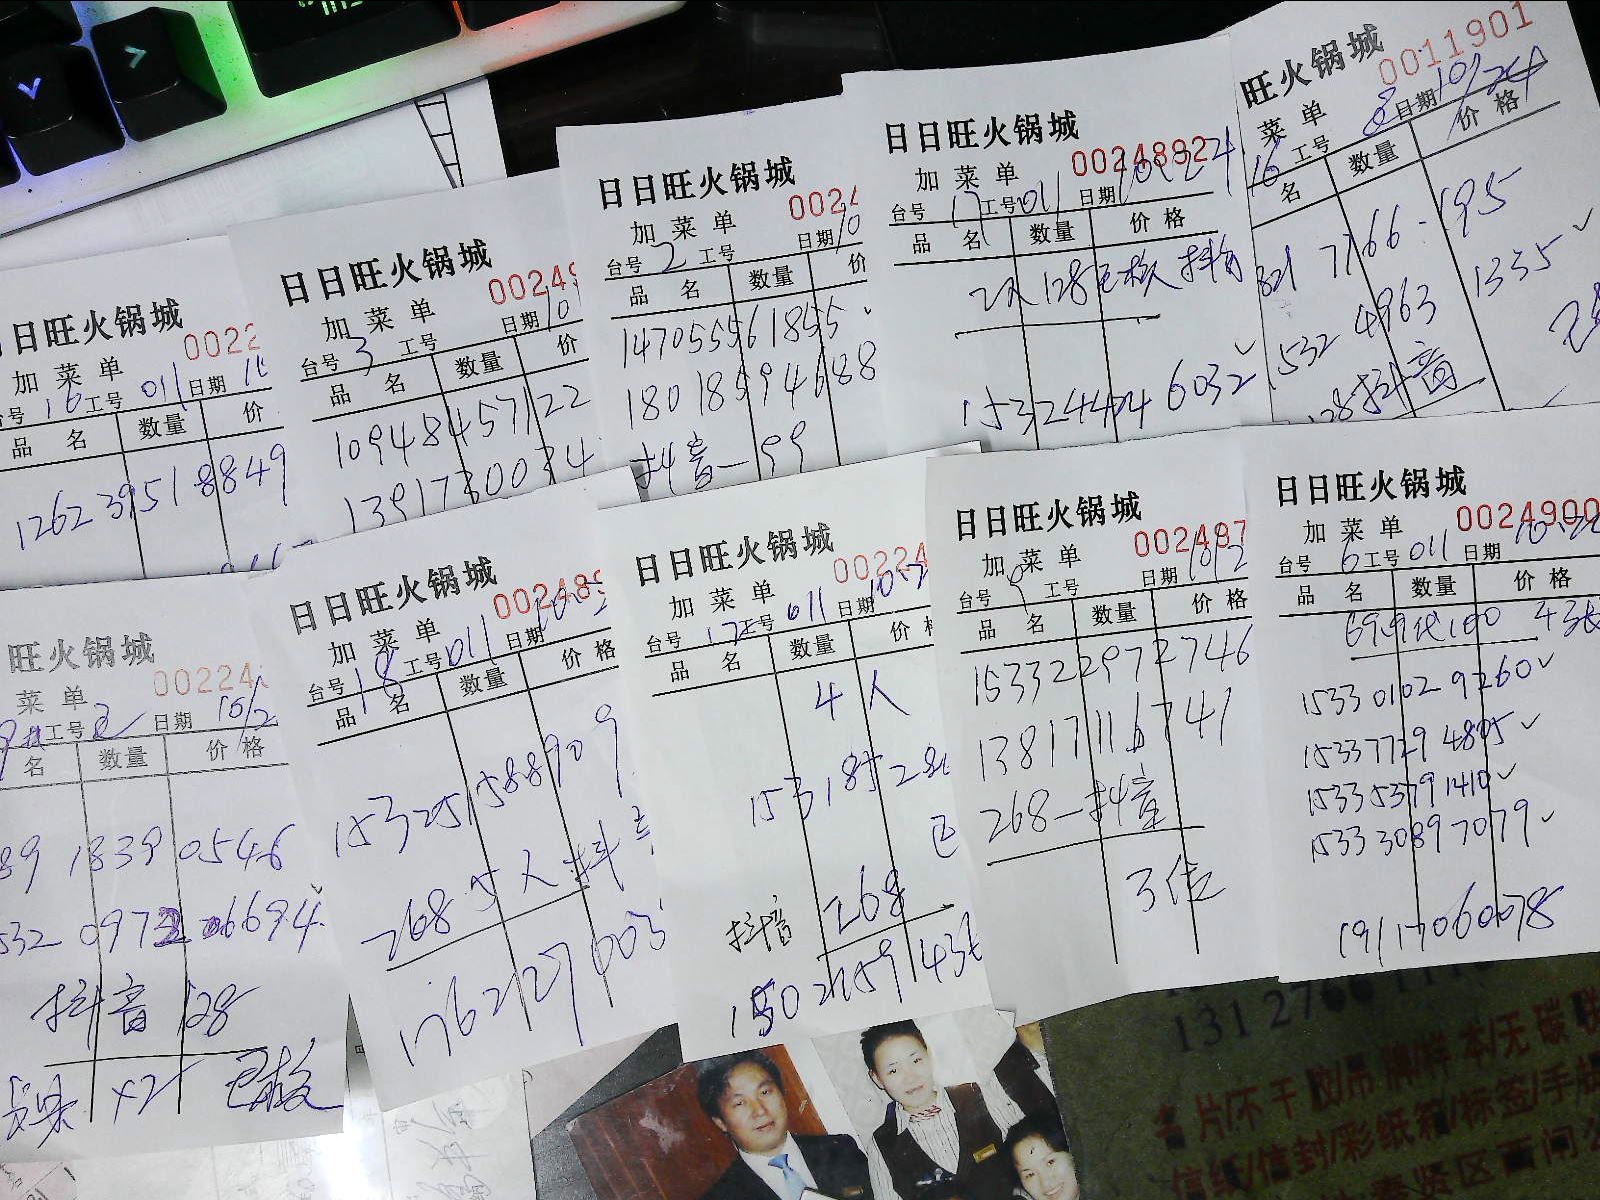 旺火锅城
0011901
菜单 日期 10/24
16 工号 8
名 数量 价格
321 7766-195
1532 4963 1335
128 抖音
日日旺火锅城
加菜单 0024882
台号 17 工号 011 日期 10-24
品名 数量 价格
2人 128 已核 抖音
153 2444 6032
日日旺火锅城
加菜单 002
台号 2 工号 日期 10
品名 数量 价
147055561855
18018594688
抖音-99
日日旺火锅城
加菜单 0024
台号 3 工号 日期 10
品名 数量 价
10948457122
1391730034
日日旺火锅城
加菜单 0022
台号 16 工号 011 日期
品名 数量 价
1262 3951 8849
旺火锅城
菜单 00224
工号 日期 10/2
名 数量 价格
89 1839 0546
532 0972 6694
抖音 128
x2 已核
日日旺火锅城
加菜单 002489
台号 18 工号 011 日期 10-2
品名 数量 价格
153251588909
268 5人 抖音
176 2127 603
日日旺火锅城
加菜单 00224
台号 12 工号 011 日期 10-2
品名 数量 价
4人
153 185 28
已
抖音 268
150 2159 43
日日旺火锅城
加菜单 002487
台号 8 工号 日期 10/2
品名 数量 价格
153322972746
13817116741
268-抖音
3位
日日旺火锅城
加菜单 0024900
台号 6 工号 011 日期 10-22
品名 数量 价格
69.9代100 4张
1533 0102 9260
1533 7729 4895
1533 5379 1410
1533 3089 7079
19117060078
131 2766
名片/不干胶/吊牌/样本/无碳联
信纸/信封/彩纸箱/标签/手
奉贤区西闸公